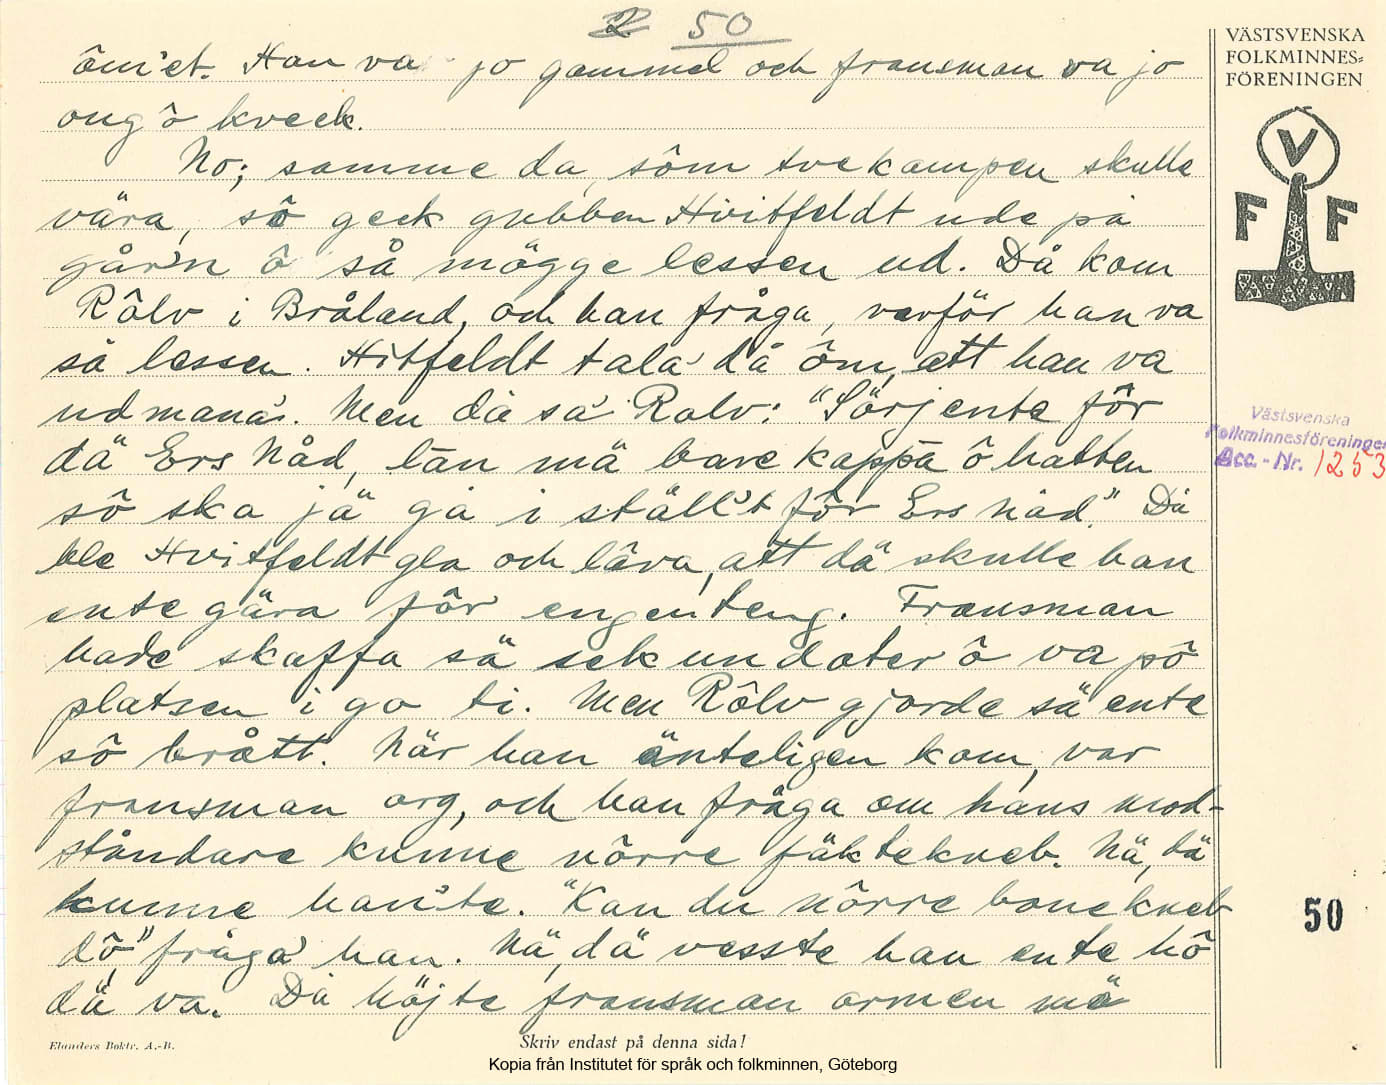 2 50
ôm'et. Han va jo gammel och fransman va jo
ong ô kveck.
No; samme da, sôm tvekampen skulle
vära, sô geck gubben Hvitfeldt ude på
går'n ô så mögge lessen ud. Då kom
Rôlv i Bråland, och han fråga, varför han va
så lessen. Hitfeldt tala då ôm, att han va
udmana'. Men då sa' Rôlv: "Sörj ente fôr
dä Ers Nåd, lån mä bare kappa ô hatten
sô ska jä gå i ställ't fôr Ers Nåd." Då
ble Hvitfeldt gla och lôva, att dä skulle han
ente gära fôr engenteng. Fransman
hade skaffa sä sekundater ô va pô
platsen i go ti. Men Rôlv gjorde sä ente
sô brått. När han änteligen kom, var
fransman arg, och han fråga om hans mod-
ståndare kunne nôrre fäktekneb. Nä, dä
kunne han'te. "Kan du nôrre bonekneb
dô" fråga' han. Nä, dä vesste han ente hô
dä va. Då höjte fransman armen mä
VÄSTSVENSKA
FOLKMINNES-
FÖRENINGEN
V
F F
Västsvenska
Folkminnesföreningen
Acc.-Nr. 1253
50
Elanders Boktr. A.-B.
Skriv endast på denna sida!
Kopia från Institutet för språk och folkminnen, Göteborg